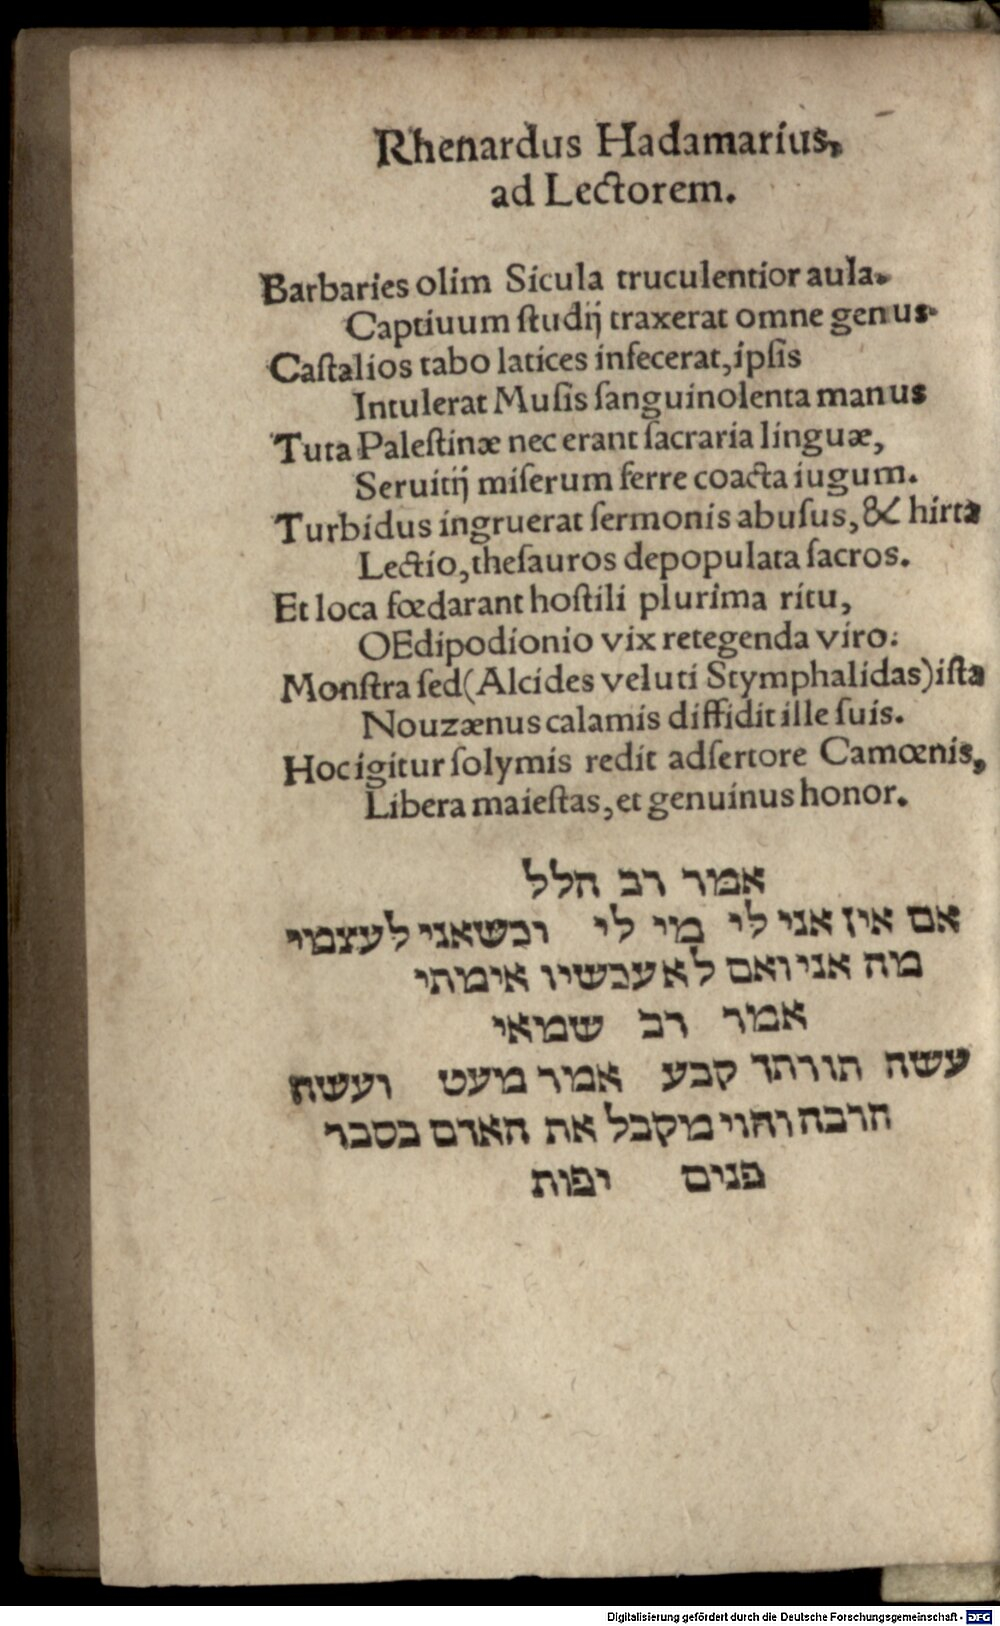 Rhenardus Hadamarius,
ad Lectorem.
Barbaries olim Sicula truculentior aula.
Captiuum ſtudij traxerat omne genus.
Caſtalios tabo latices infecerat, ipſis
Intulerat Muſis ſanguinolenta manus
Tuta Paleſtinæ nec erant ſacraria linguæ,
Seruitij miſerum ferre coacta iugum.
Turbidus ingruerat ſermonis abuſus, & hirta
Lectio, theſauros depopulata ſacros.
Et loca fœdarant hoſtili plurima ritu,
OEdipodionio vix retegenda viro.
Monſtra ſed (Alcides veluti Stymphalidas) iſta
Nouzænus calamis diffidit ille ſuis.
Hoc igitur ſolymis redit adſertore Camœnis,
Libera maieſtas, et genuinus honor.
אמר רב הלל
אם אין אני לי מי לי וכשאני לעצמי
מה אני ואם לא עכשיו אימתי
אמר רב שמאי
עשה תורתך קבע אמר מעט ועשה
הרבה והוי מקבל את האדם בסבר
פנים יפות
Digitalisierung gefördert durch die Deutsche Forschungsgemeinschaft - DFG